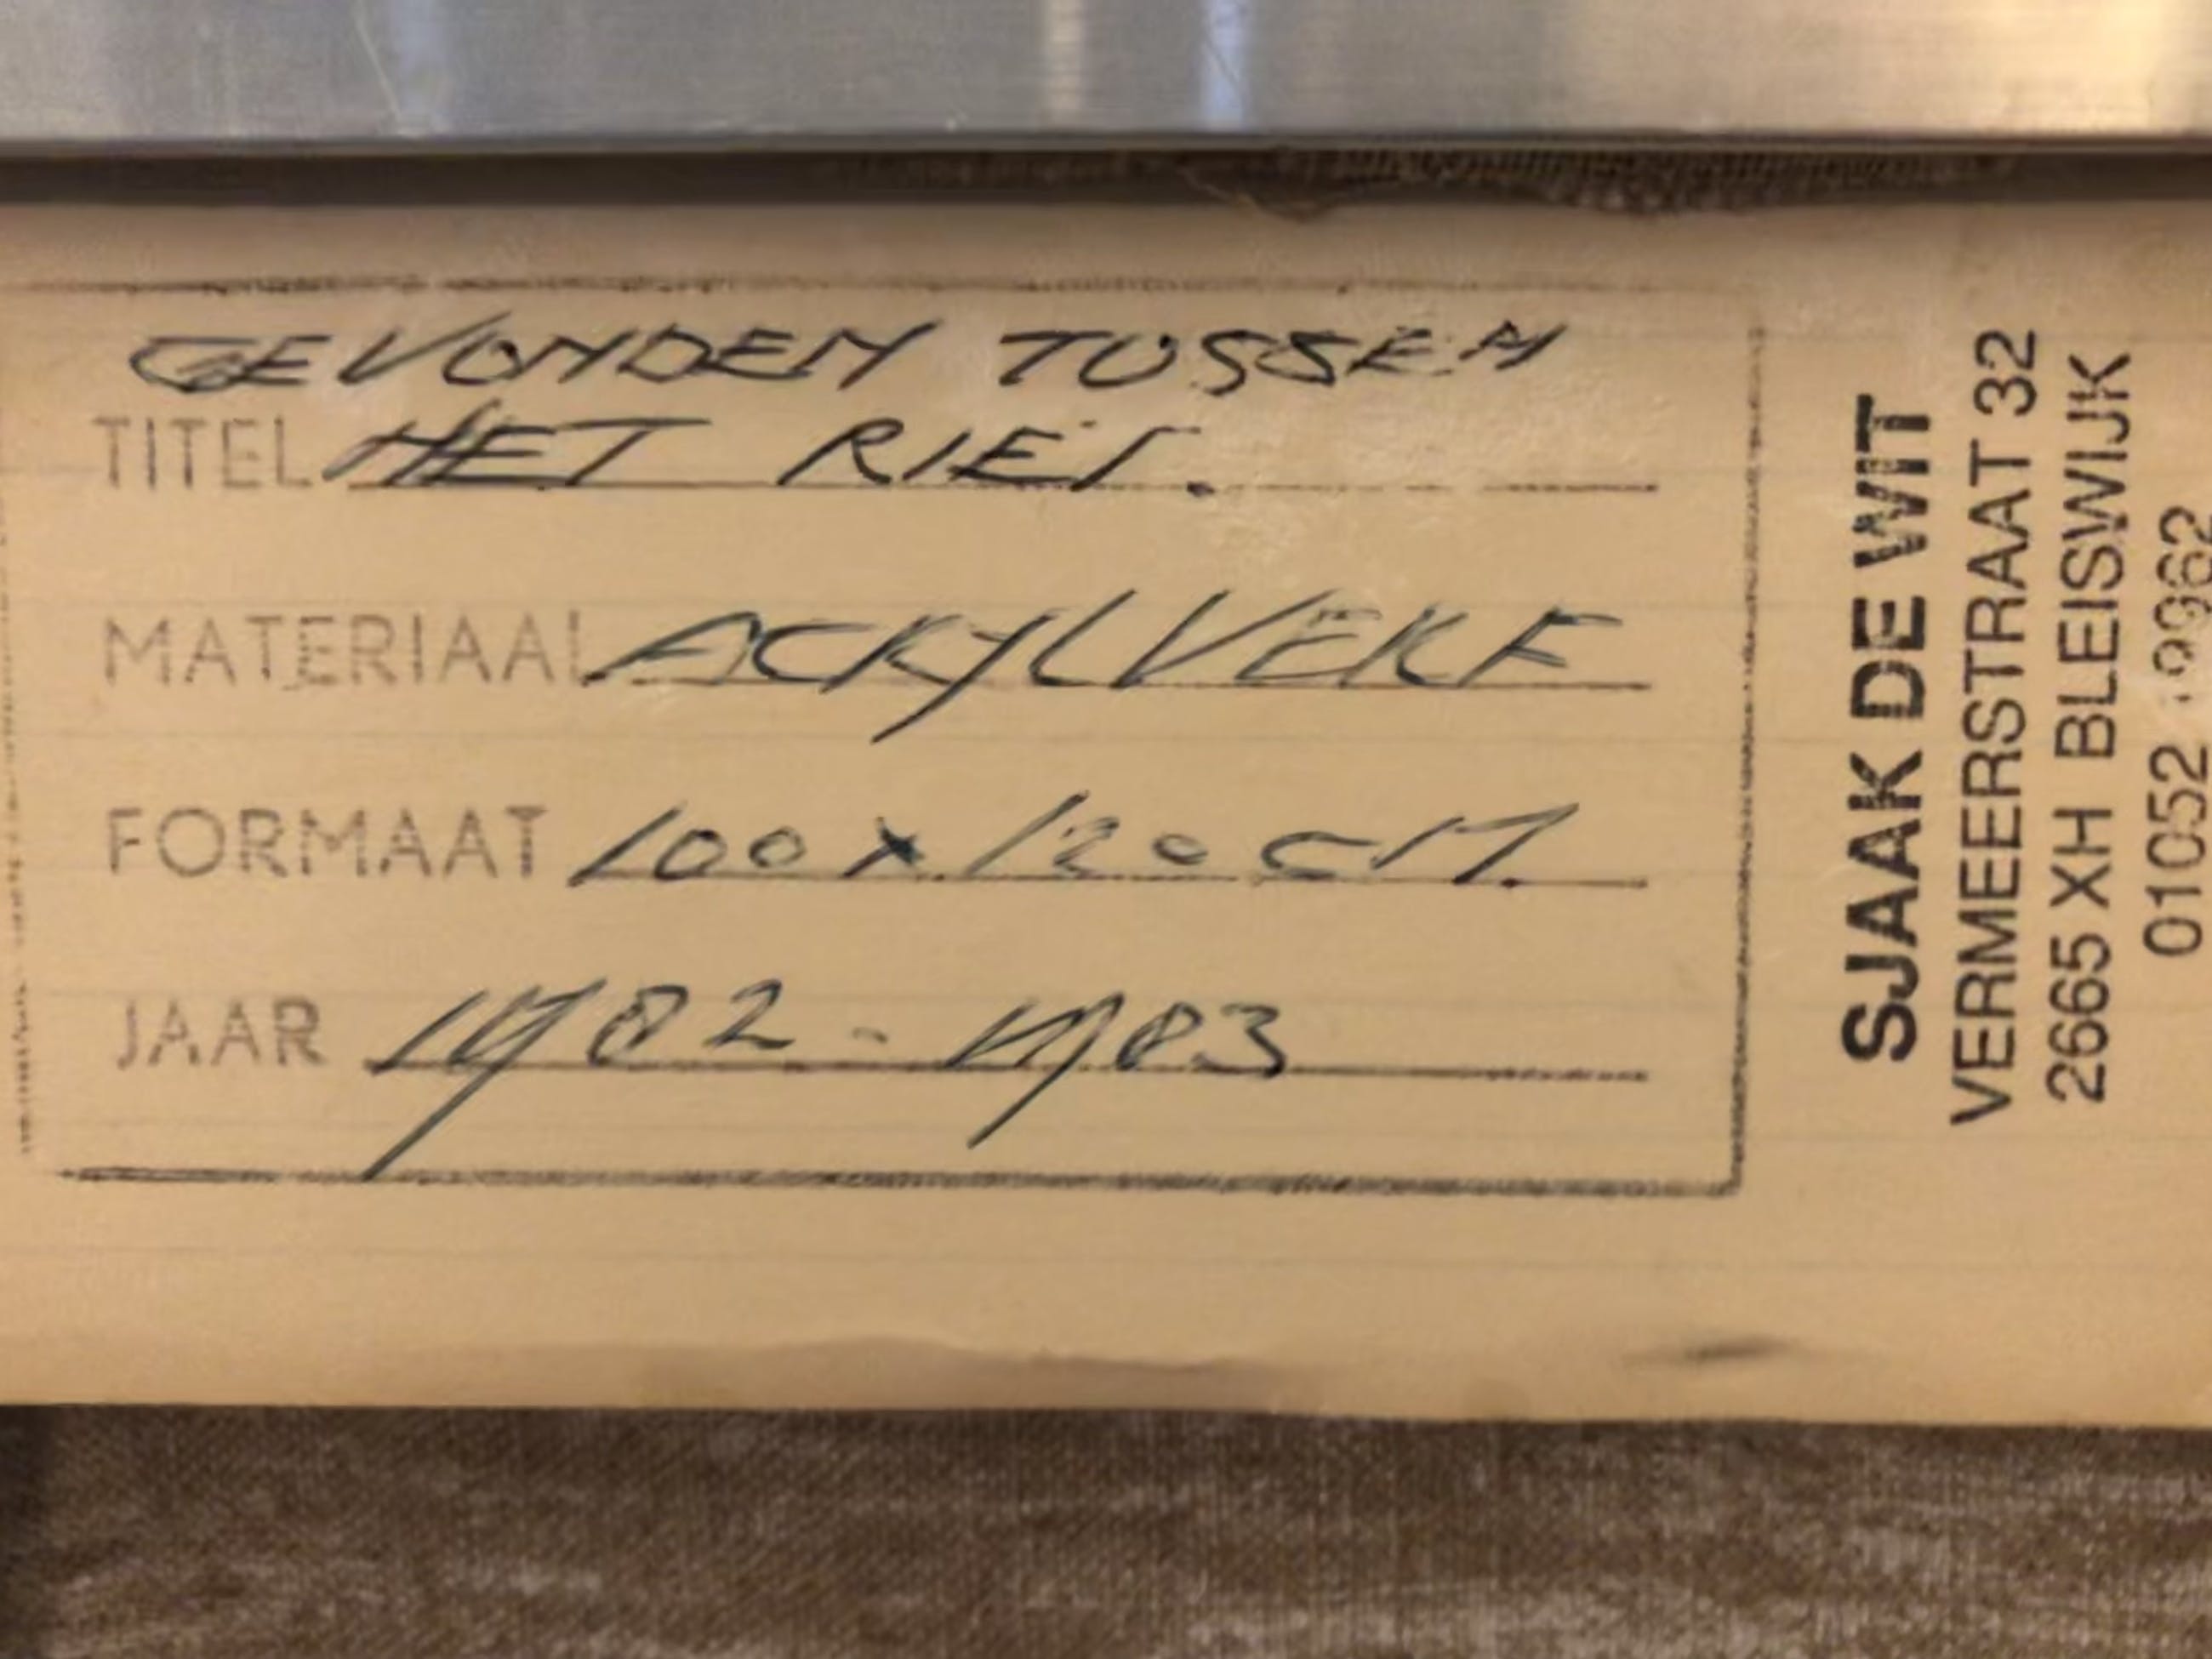 GEVONDEN TUSSEN
TITEL HET RIET.
MATERIAAL ACRYLVERF
FORMAAT 100 x 120 CM
JAAR 1982 - 1983
SJAAK DE WIT
VERMEERSTRAAT 32
2665 XH BLEISWIJK
01052